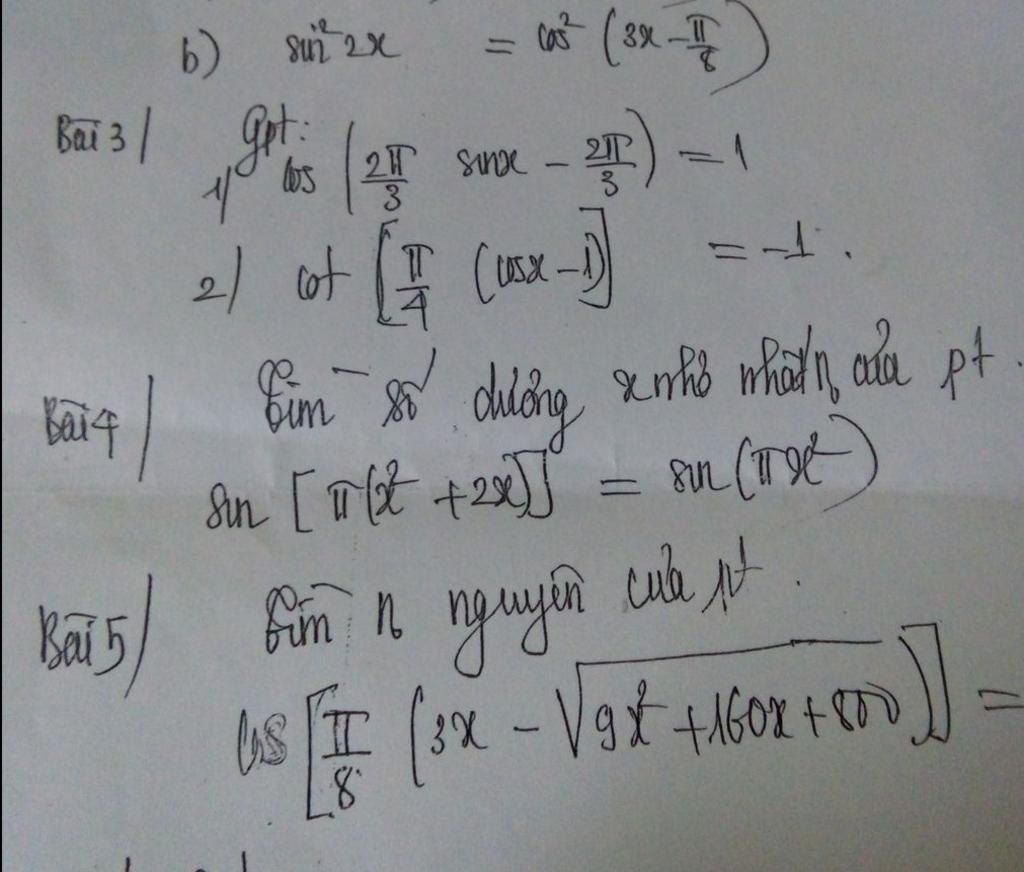 b) sin² 2x = cos² (3x - π/8)
Bài 3/ Gpt:
1/ cos (2π/3 sinx - 2π/3) = 1
2/ cot [π/4 (cosx - 1)] = -1.
Bài 4/ Tìm số dương x nhỏ nhất n của pt.
sin [π(x² + 2x)] = sin (πx²)
Bài 5/ Tìm n nguyên của pt.
cos [π/8 (3x - √9x² + 160x + 800)] =